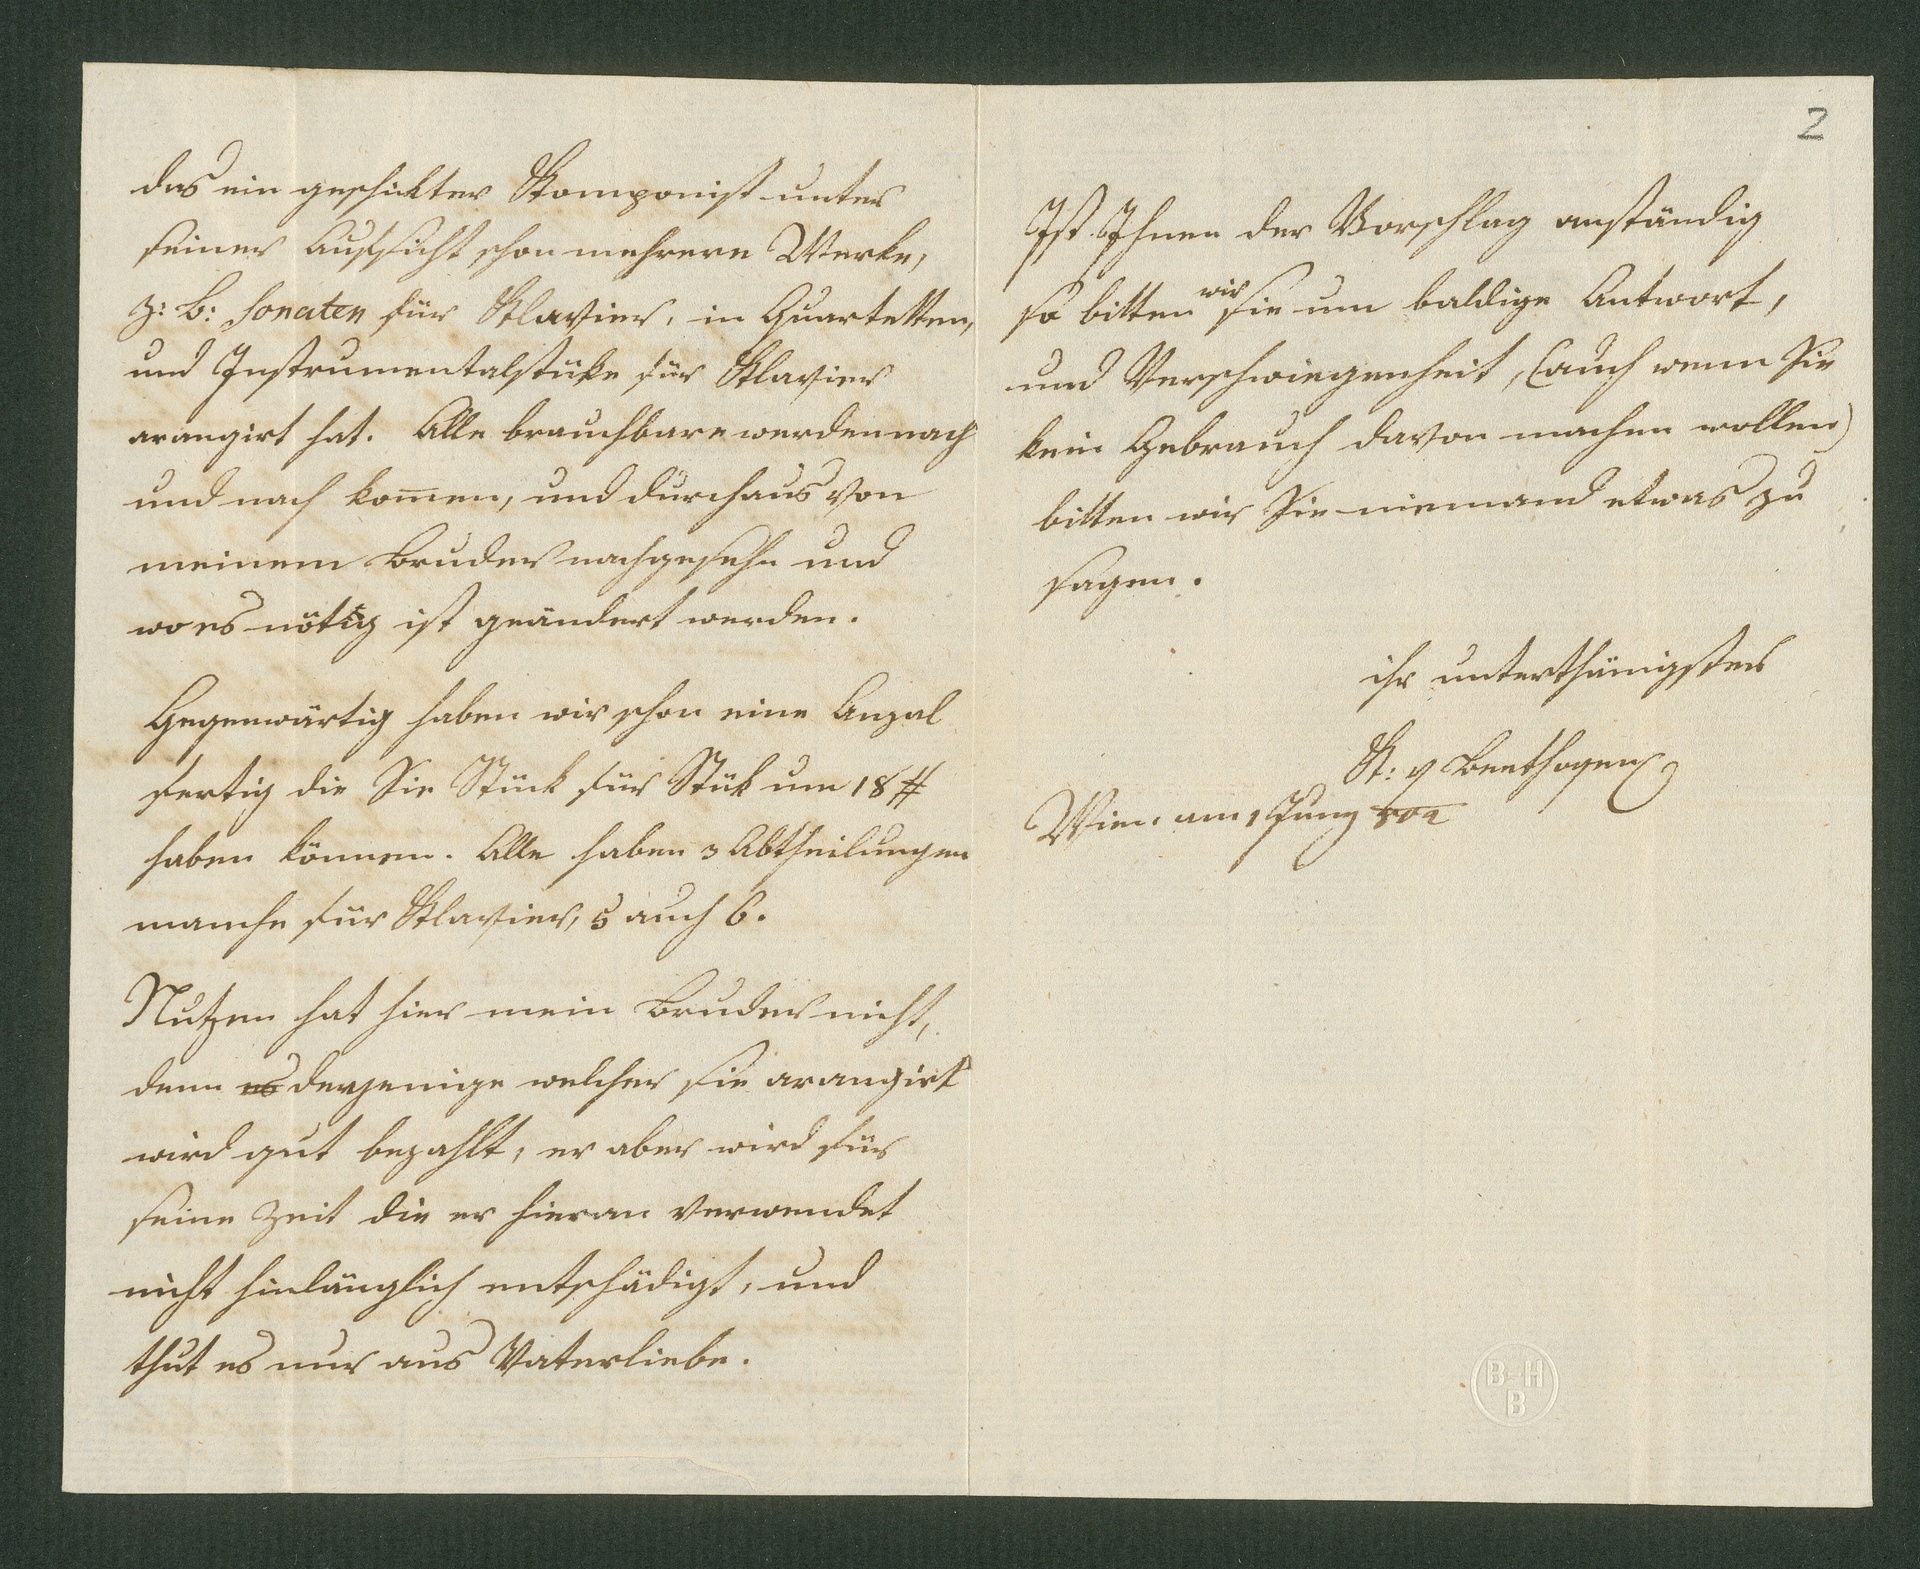 das ein geschikter Komponist unter
seiner Aufsicht schon mehrere Werke,
z: B: Sonaten für Klavier, in Quartetten,
und Instrumentalstüke für Klavier
arangirt hat. Alle brauchbare werden nach
und nach kom̅en, und durchaus von
meinem Bruder nachgesehn und
wo es nötig ist geändert werden.
Gegenwärtig haben wir schon eine Anzal
fertig die Sie Stück für Stük um 18 #
haben können. Alle haben 3 Abtheilungen
manche für Klavier, 5 auch 6.
Nutzen hat hier mein Bruder nicht,
denn es derjenige welcher sie arangirt
wird gut bezahlt, er aber wird für
seine Zeit die er hieran verwendet
nicht hinlänglich entschädigt, und
thut es nur aus Vaterliebe.
2
Ist Ihnen der Vorschlag anständig
so bitten wir sie um baldige Antwort,
und Verschwiegenheit, (auch wenn Sie
kein Gebrauch davon machen wollen)
bitten wir Sie niemand etwas zu
sagen.
ihr unterthänigster
K: v Beethoven
Wien am 1 Juny 802
B H
B